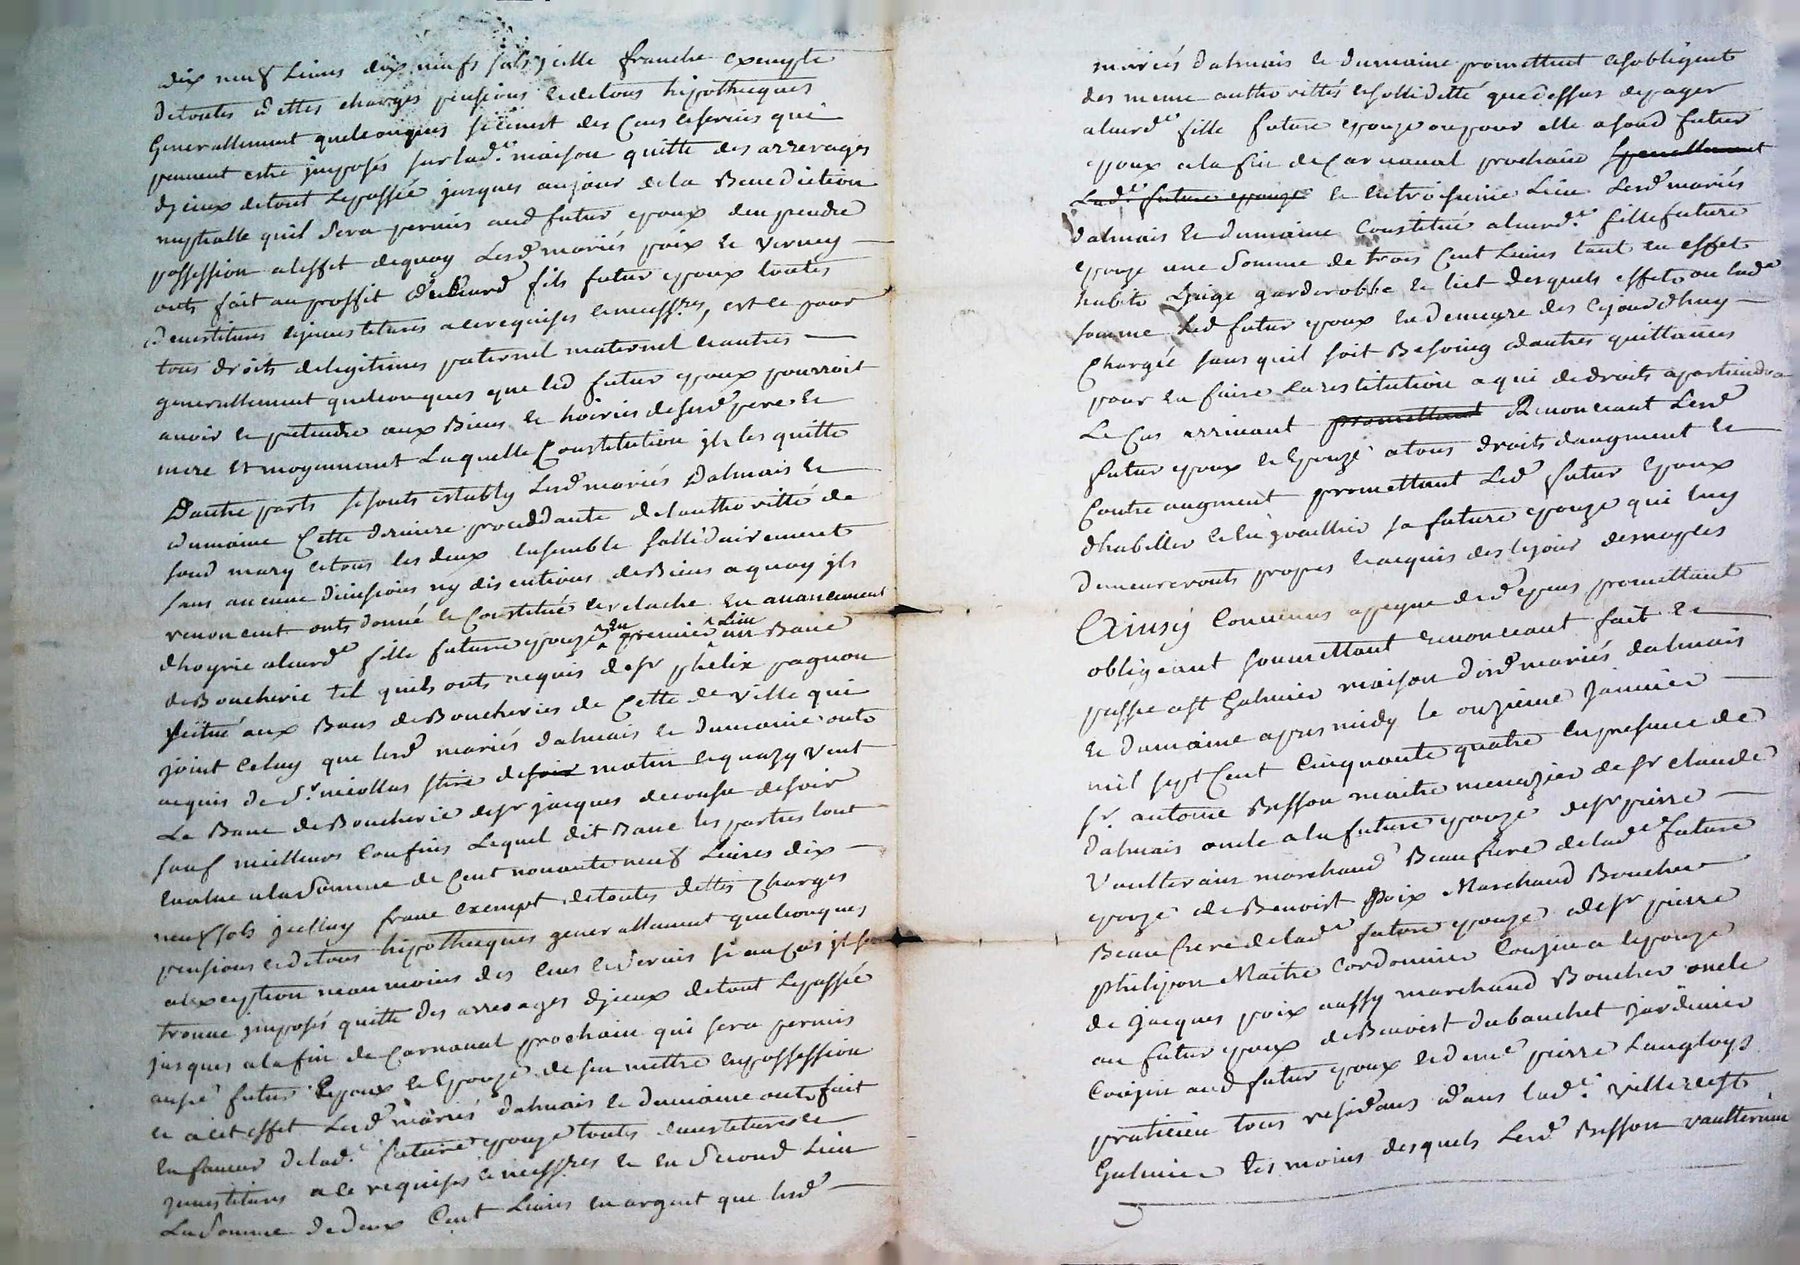 dix neuf Livres dix neufs sols jcelle franche exempte
detoutes dettes charges pensions et detous hipotheques
Generallement quelconques si cenest des Cens et servis qui
peuvent estre jmposés sur lad.e maison quitte des arrerages
djceux detout le passée jusques au jour de la Benediction
nuptialle quil sera permis aud futur epoux den prendre
possession a leffet dequoy Lesd mariés poix et Verney
onts fait au proffit dud leurd fils futur epoux toutes
devestitures et jnvestitures a ce requises et necess.res, est ce pour
tous droits delegitimes paternel maternel et autres
generallement quelconques que led futur epoux pourroit
avoir et pretendre aux Biens et hoiries de sesd pere et
mere et moyennant Laquelle Constitution jls les quitte
Dautre parts se sonts estably Lesd mariés Dalmais et
dumaine Cette derniere proceddante de lauthorittée de
sond mary et tous les deux ensemble sollidairement
sans aucune divisions ny discutions de Biens a quoy jls
renoncent onts donné et Constitué et relache en avancement
dhoyrie a leurd.e fille future epouze en premier Lieu un Banc
de Boucherie tel quils onts acquis de sr phelix pagnon
scitué aux Bancs de Boucheries de Cette de Ville qui
joint celuy que lesd mariés dalmais et dumaine onts
acquis de S.r nicollas de soir matin et quazy vent
Le Banc de Boucherie de sr jacques de soir
sauf meilleurs Confins Lequel dit Banc les parties lont
evalué a la Somme de Cent nonante neuf Livres dix
neuf sols jcelluy franc exempt de toutes dettes Charges
pensions et de tous hipotheques generallement quelconques
a lexception neanmoins des Cens et servis si au Cas jl sen
trouve jmposés quitte des arrerages djceux de tout le passée
jusques a la fin de Carnaval prochain qui sera permis
futur Epoux et Epouze de sen mettre en possession
et a cet effet Lesd mariés dalmais et dumaine onts fait
en faveur de lad.e future epouze toutes devestitures et
jnvestitures a ce requises et necess.res et en Second Lieu
La Somme de deux Cent Livres en argent que lesd
mariés dalmais et dumaine promettent et sobligents
des meme authorittés et solliditté que dessus de payer
a leurd.e fille future epouze ou pour elle a sond futur
epoux a la fin de Carnaval prochain
Lad.e future epouze et en troisieme Lieu Lesd mariés
dalmais et dumaine Constitué a leurd.e fille future
epouze une Somme de trois Cent Livres tant en effets
habits Linge garderobbe et lict desquels effets ou lad.e
somme Led futur epoux en demeure des cejourdhuy
Chargée sans quil soit Besoing dautres quittances
pour en faire la restitution a qui de droits apartiendra
Le Cas arrivant promettant Renonceant Lesd
futur epoux et epouze a tous droits daugment et
Contre augment promettant Led futur Epoux
dhabiller et enjouallier sa future epouze qui luy
demeureronts propres et acquis des le jour des nopces
Ainsy Convenus a peyne de dépens promettant
obligeant soumettant renonceant fait et
passé a st Galmier maison desd mariés dalmais
et dumaine apres midy le onzieme janvier
mil sept Cent Cinquante quatre en presence de
sr. antoine Bisson maitre menuzier de sr claude
Dalmais oncle a la future epouze de sr pierre
Vaulterain marchand Beau frere de lad.e future
epouze de Benoist Poix Marchand Boucher
Beau frere de lad.e future epouze de sr pierre
philipon Maitre cordonnier Couzin a lepouze
de jacques poix aussy marchand Boucher oncle
au futur epoux de Benoist dubouchet jardinier
Couzin aud futur epoux et de me pierre Langloys
praticien tous residans dans lad.e ville de st
Galmier tesmoins desquels Lesd Bisson vaulterain